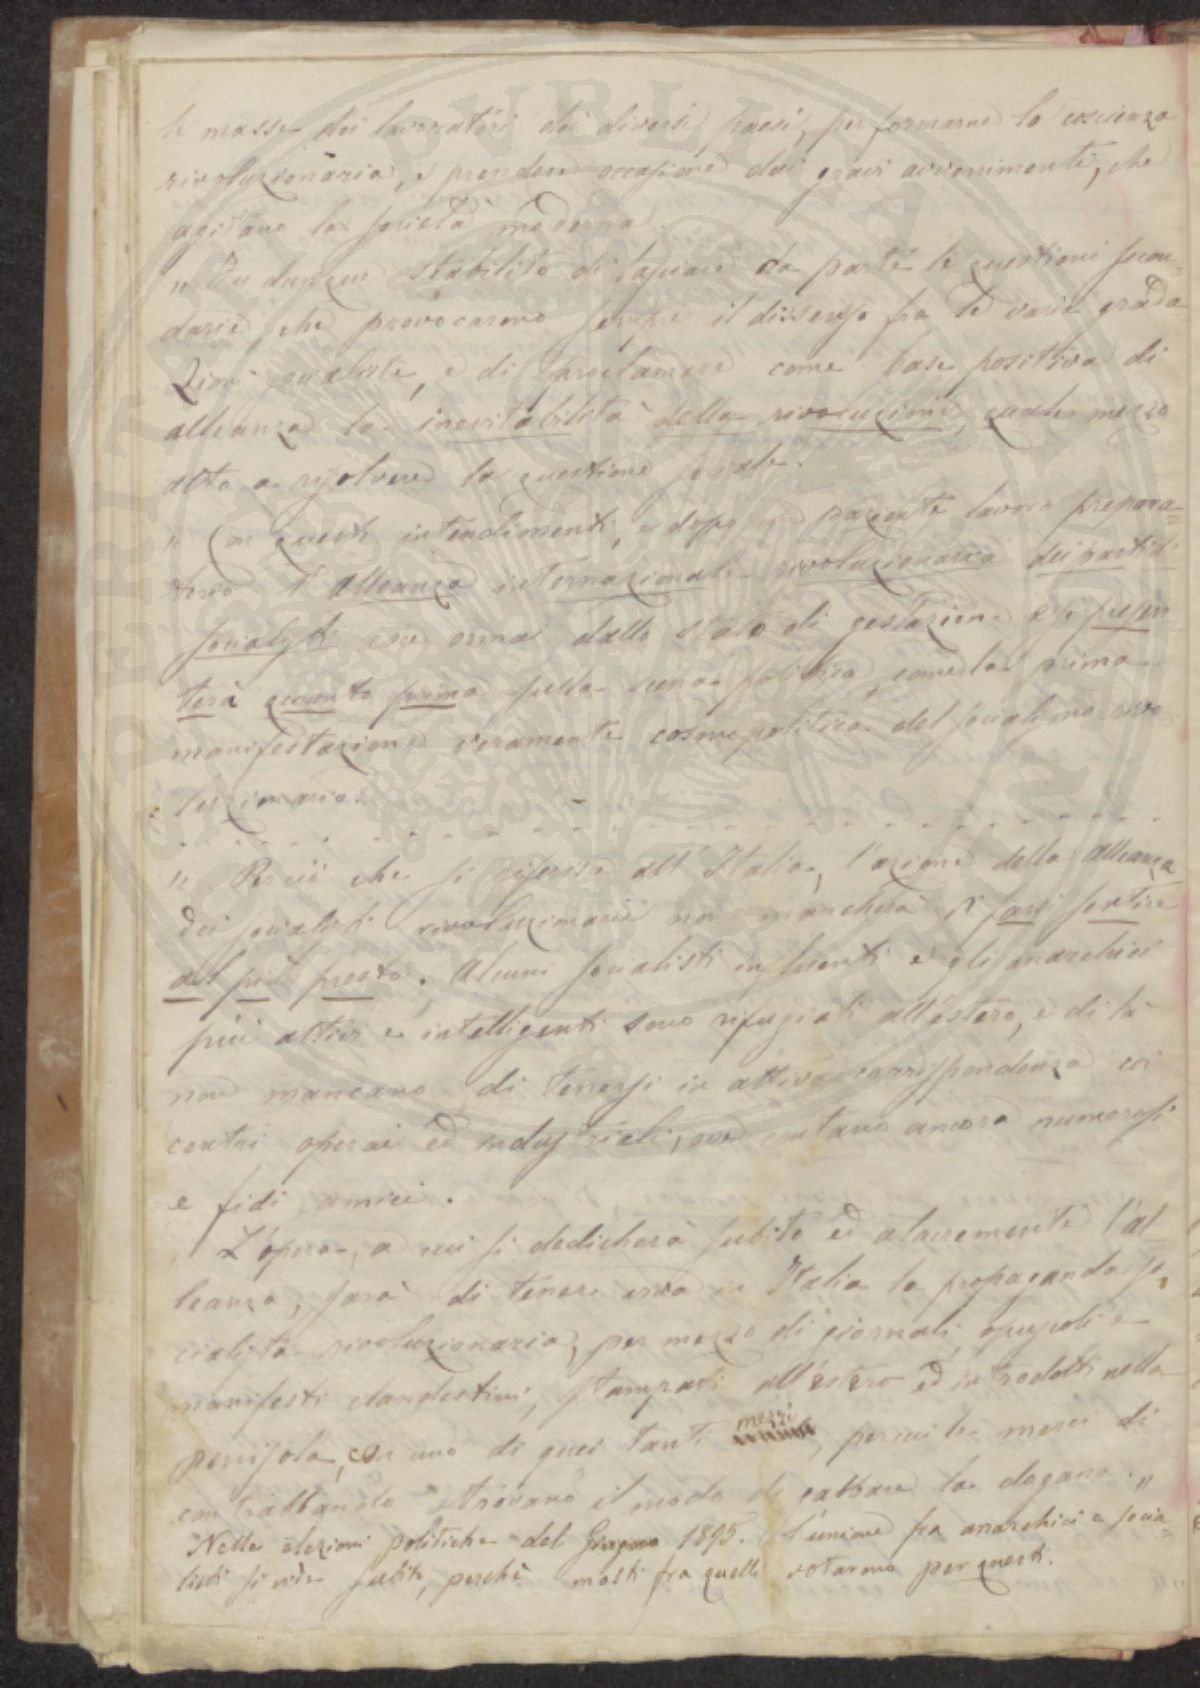 le masse dei lavoratori dei diversi paesi, per formarne la coscienza
rivoluzionaria, e prendere occasione dai gravi avvenimenti, che
agitano la società moderna.
" Fu dunque stabilito di lasciare da parte le questioni secon=
darie, che provocarono sempre il dissenso fra le varie grada=
zioni socialiste, e di proclamare come base positiva di
alleanza la inevitabilità della rivoluzione, quale mezzo
atto a risolvere la questione sociale.
" Con questi intendimenti, e dopo un paziente lavoro prepara=
torio l'alleanza internazionale rivoluzionaria dei partiti
socialisti esce ormai dallo stato di gestazione e si presen
terà quanto prima sulla scena politica, come la prima
manifestazione veramente cosmopolitica del socialismo rivo
luzionario.
" Per ciò che si riferisce all'Italia, l'azione della alleanza
dei socialisti rivoluzionarii non mancherà di farsi sentire
al più presto. Alcuni socialisti influenti e gli anarchici
più attivi e intelligenti sono rifugiati all'estero, e di là
non mancano di tenersi in attiva corrispondenza coi
centri operai ed industriali, ove contano ancora numerosi
e fidi amici.
" L'opera, a cui si dedicherà subito ed alacremente l'al=
leanza, sarà di tenere viva in Italia la propaganda so
cialista rivoluzionaria, per mezzo di giornali, opuscoli e
manifesti clandestini, stampati all'estero ed introdotti nella
penisola, con uno di quei tanti mezzi, per cui le merci di
contrabbando trovano il modo di gabbare la dogana. "
Nelle elezioni politiche del Giugno 1895. l'unione fra anarchici e socia=
listi si vide subito, perchè molti fra quelli votarono per questi.